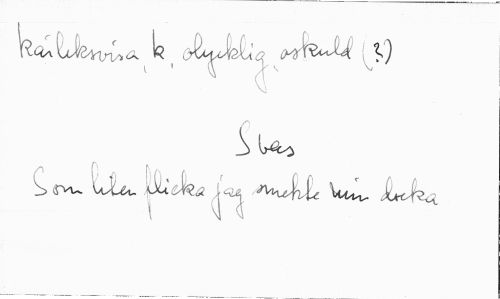 Kärleksvisa, k, olycklig, oskuld (?)
Svas
Som liten flicka jag smekte min docka